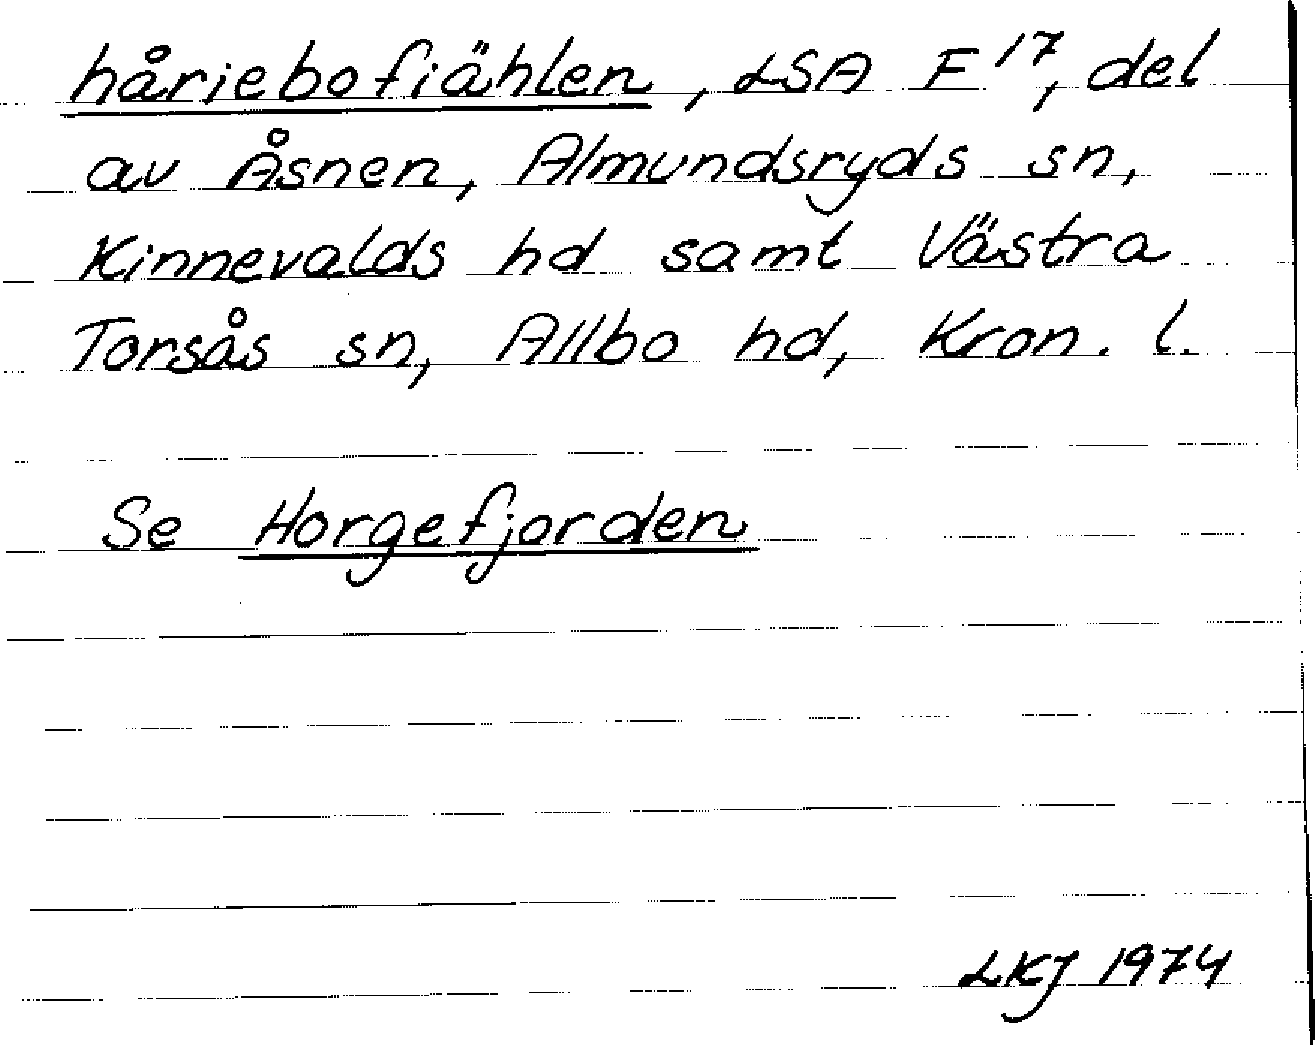 håriebofiählen, LSA F17, del
av Åsnen, Almundsryds sn,
Kinnevalds hd samt Västra
Torsås sn, Allbo hd, Kron. l.
Se Horgefjorden
LKJ 1974